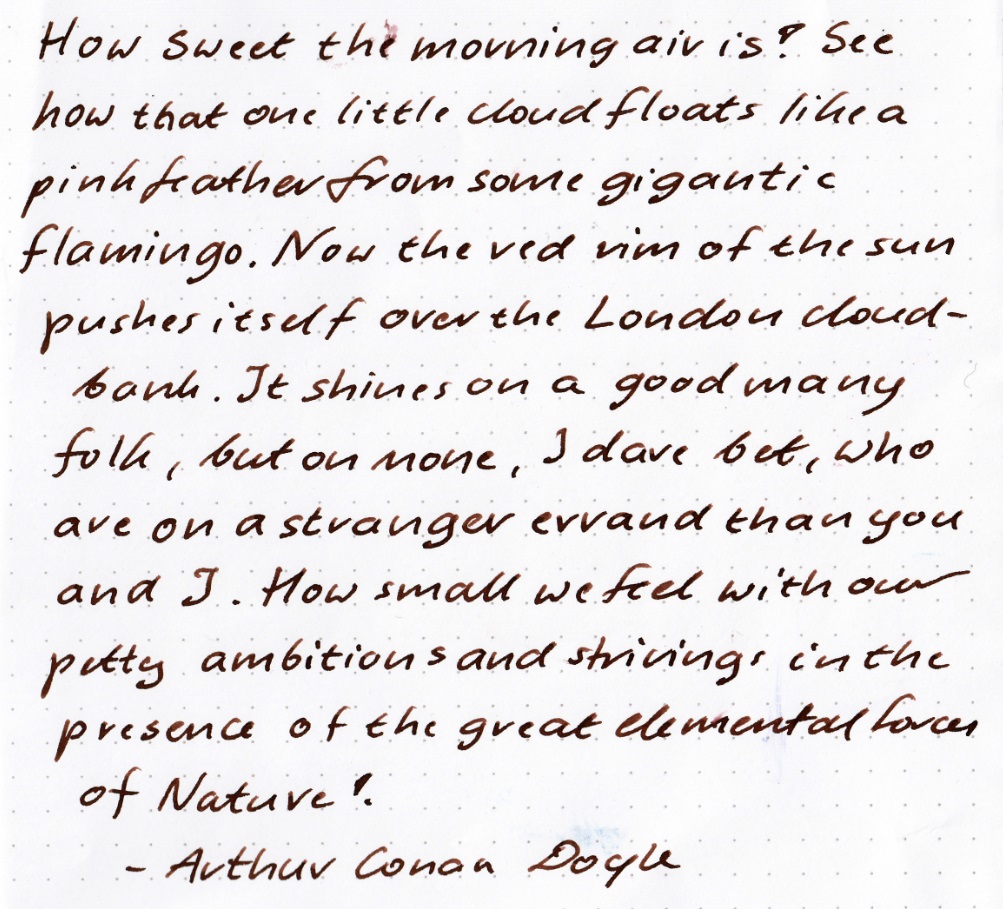 How sweet the morning air is! See
how that one little cloud floats like a
pink feather from some gigantic
flamingo. Now the red rim of the sun
pushes itself over the London cloud-
bank. It shines on a good many
folk, but on none, I dare bet, who
are on a stranger errand than you
and I. How small we feel with our
petty ambitions and strivings in the
presence of the great elemental forces
of Nature!
- Arthur Conan Doyle